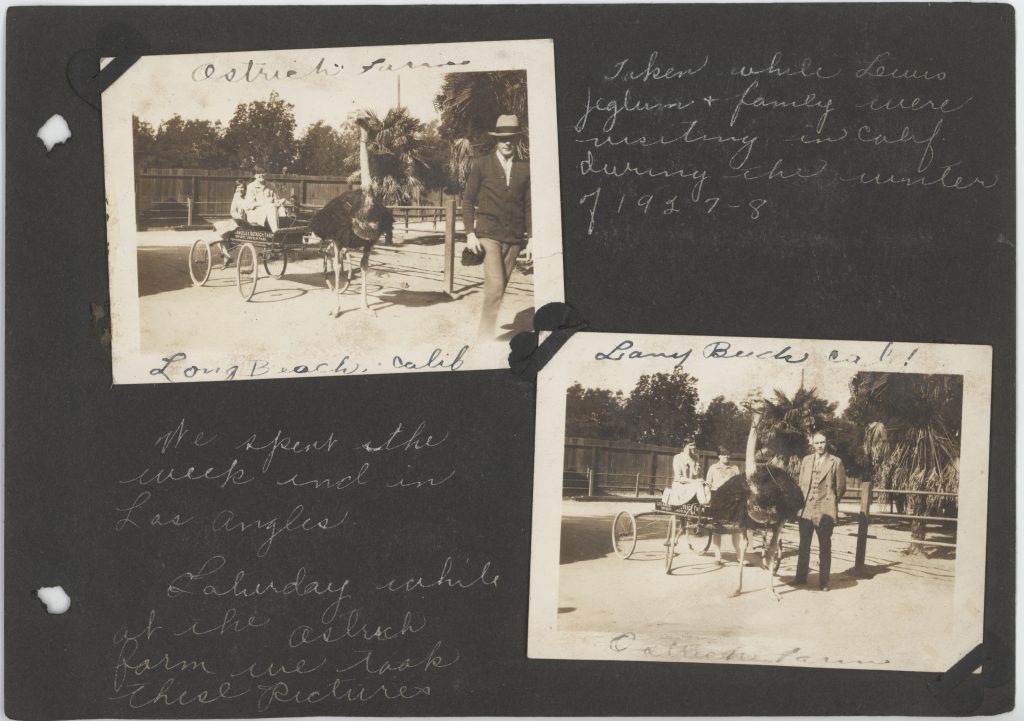 Ostrich Farm
Long Beach, Calif
Taken while Lewis
Jeglum + family were
visiting in Calif
during the winter
of 1927-8
Long Beach Calif
Ostrich Farm
We spent the
week end in
Los Angles
Saturday while
at the Ostrich
farm we took
these pictures
OSTRICH FARM